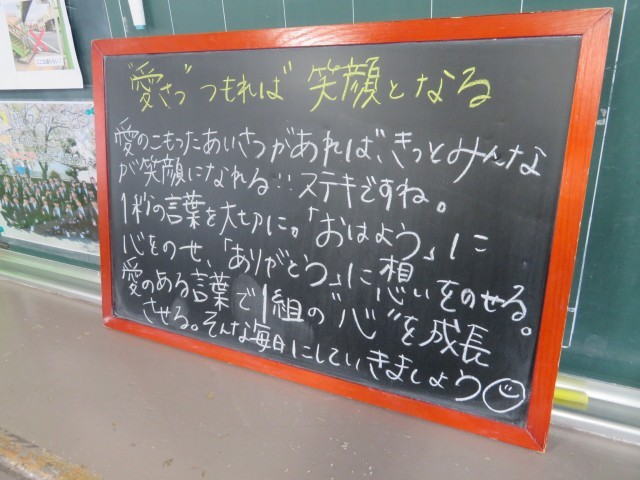 "愛さつ"つもれば"笑顔となる
愛のこもったあいさつがあれば、きっとみんな
が笑顔になれる!!ステキですね。
1秒の言葉を大切に。「おはよう」に
心をのせ、「ありがとう」に想いをのせる。
愛のある言葉で1組の"心"を成長
させる。そんな毎日にしていきましょう